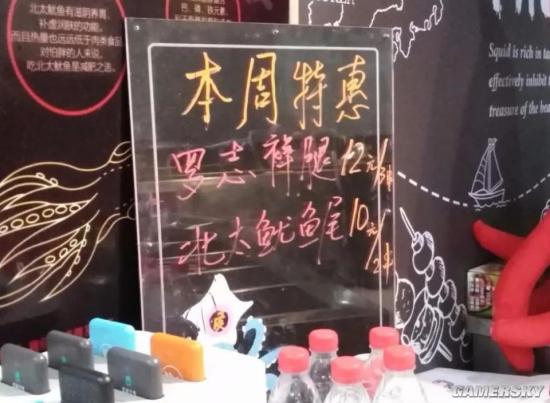 北太鱿鱼有滋阴养胃、
补虚润肤的功能。
而且热量也远远低于肉类食品
对怕胖的人来说,
吃北太鱿鱼是减肥之选。
本周特惠
罗志祥腿12元/3串
北太鱿鱼尾10元/2串
Squid is rich in
effectively inhibit
treasure of the
GAMERSKY